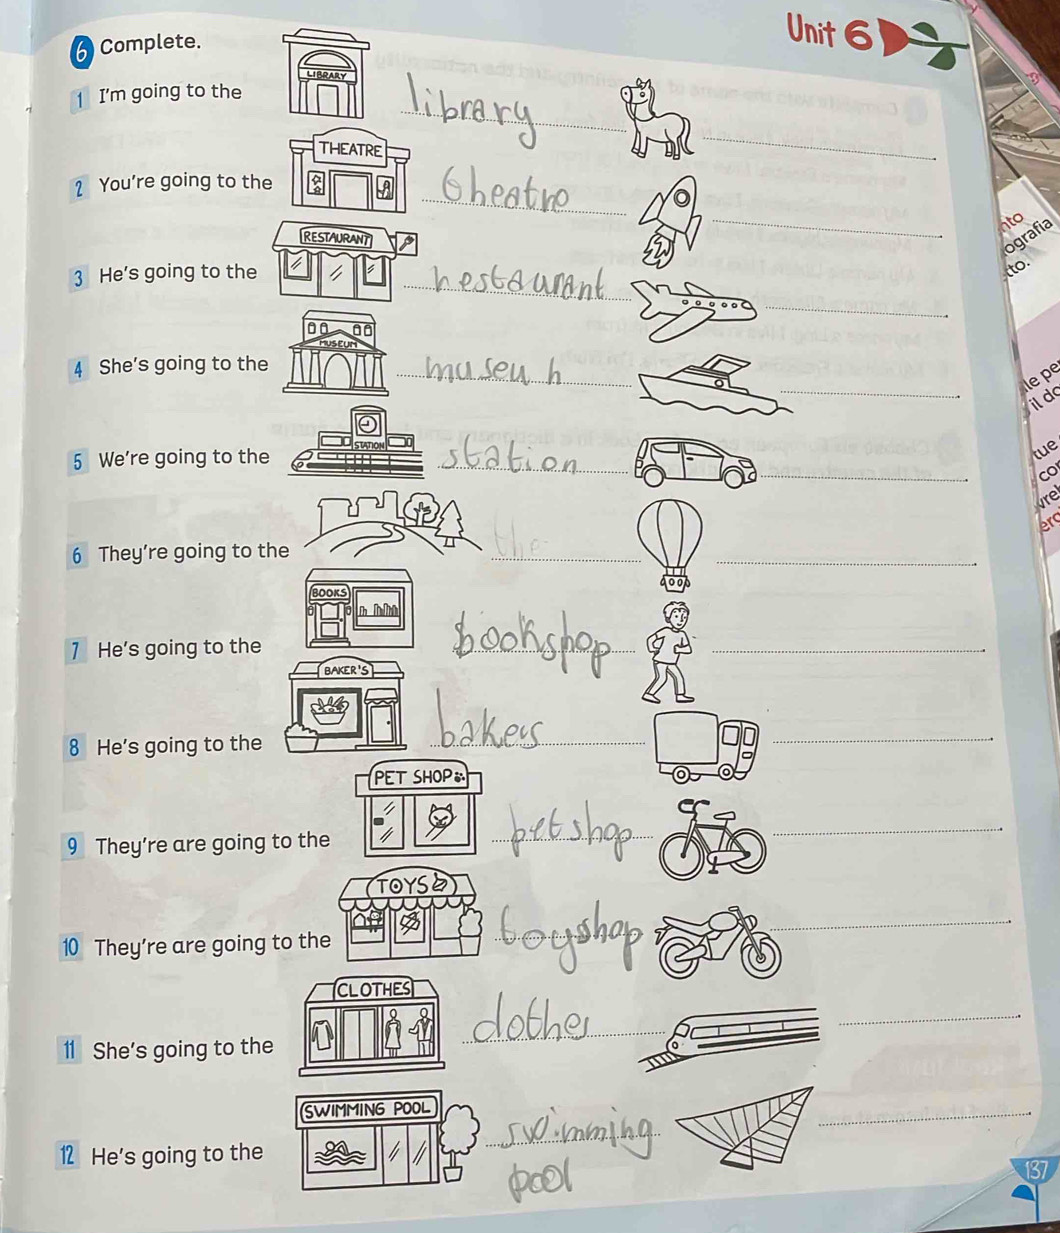 Unit 6
6 Complete.
LIBRARY
1 I'm going to the library
THEATRE
2 You're going to the theatre
RESTAURANT
3 He's going to the restaurant
MUSEUM
4 She's going to the museu
STATION
5 We're going to the station
6 They're going to the the
BOOKS
7 He's going to the bookshop
BAKER'S
8 He's going to the bakers
PET SHOP
9 They're are going to the pet shop
TOYS
10 They're are going to the toyshop
CLOTHES
11 She's going to the clothes
SWIMMING POOL
12 He's going to the swimming
pool
137
nto
ografia
tto.
le pe
il do
tue
co
vre